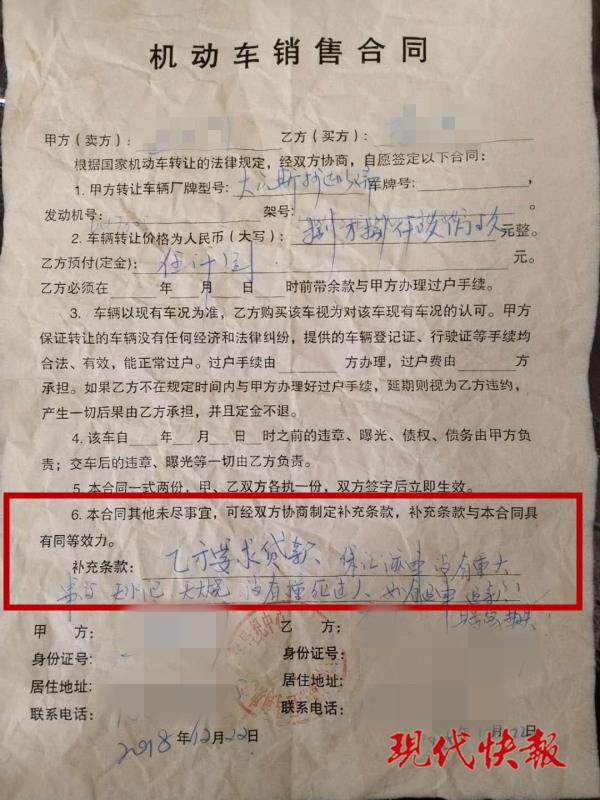 机动车销售合同
甲方（卖方）： 乙方（买方）：
根据国家机动车转让的法律规定，经双方协商，自愿签定以下合同：
1. 甲方转让车辆厂牌型号：大众斯 车牌号：
发动机号： 架号： 。
2. 车辆转让价格为人民币（大写）：捌万捌仟 元整。
乙方预付(定金)： 元。
乙方必须在 年 月 日 时前带余款与甲方办理过户手续。
3. 车辆以现有车况为准，乙方购买该车视为对该车现有车况的认可。甲方
保证转让的车辆没有任何经济和法律纠纷，提供的车辆登记证、行驶证等手续均
合法、有效，能正常过户。过户手续由 方办理，过户费由 方
承担。如果乙方不在规定时间内与甲方办理好过户手续，延期则视为乙方违约，
产生一切后果由乙方承担，并且定金不退。
4. 该车自 年 月 日 时之前的违章、曝光、债权、债务由甲方负
责；交车后的违章、曝光等一切由乙方负责。
5. 本合同一式两份，甲、乙双方各执一份，双方签字后立即生效。
6. 本合同其他未尽事宜，可经双方协商制定补充条款，补充条款与本合同具
有同等效力。
补充条款：乙方要求贷款、保证 没有重大
事故 水泡 火烧 没有撞死过人
甲 方： 乙 方：
身份证号： 身份证号：
居住地址： 居住地址：
联系电话： 联系电话：
2018年12月22日 22日
现代快報